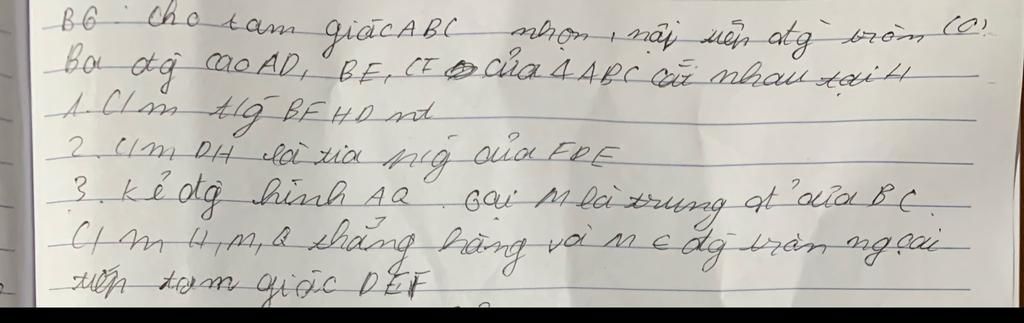 B6: Cho tam giác ABC nhọn, nội tiếp đtg tròn (O).
Ba đtg cao AD, BE, CF của Δ ABC cắt nhau tại H
1. C/m t/g BFHD nt
2. C/m DH là tia p/g của FDE
3. Kẻ đtg kính AQ. Gọi M là trung đ' của BC.
C/m H, M, Q thẳng hàng và M ∈ đg tròn ngoại
tiếp tam giác DEF